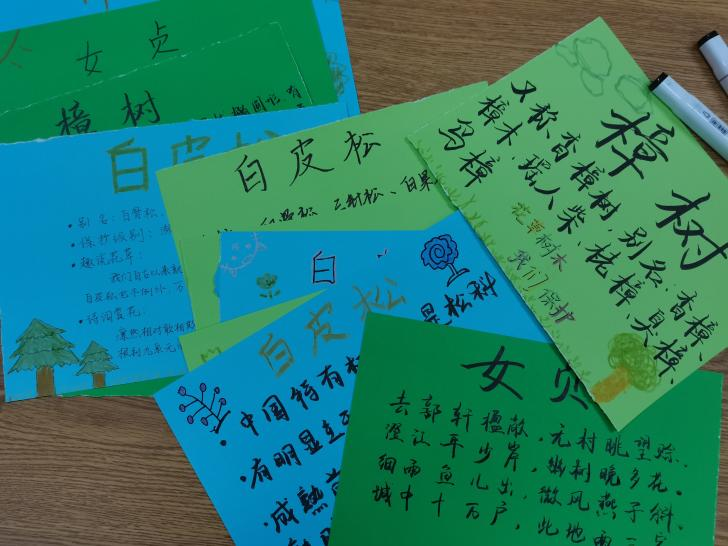 女贞
樟树
椭圆形,有
白皮松
•别名:白骨松、
•保护级别:
•趣谈花草:
我们自古以来就
白皮松也不例外,万
•诗词赏花:
凛然相对敢相欺
白皮松
三针松、白果
白
是松科
白皮松
•中国特有
•有明显主
•成熟
樟树
又称香樟树,别名:香樟、
樟木、瑶人柴、栳樟、臭樟、
乌樟
花草树木
我们保护
女贞
去郭轩楹敞,元村眺望赊.
澄江平少岸,幽树晚多花。
细雨鱼儿出,微风燕子斜.
城中十万户,此地两三家